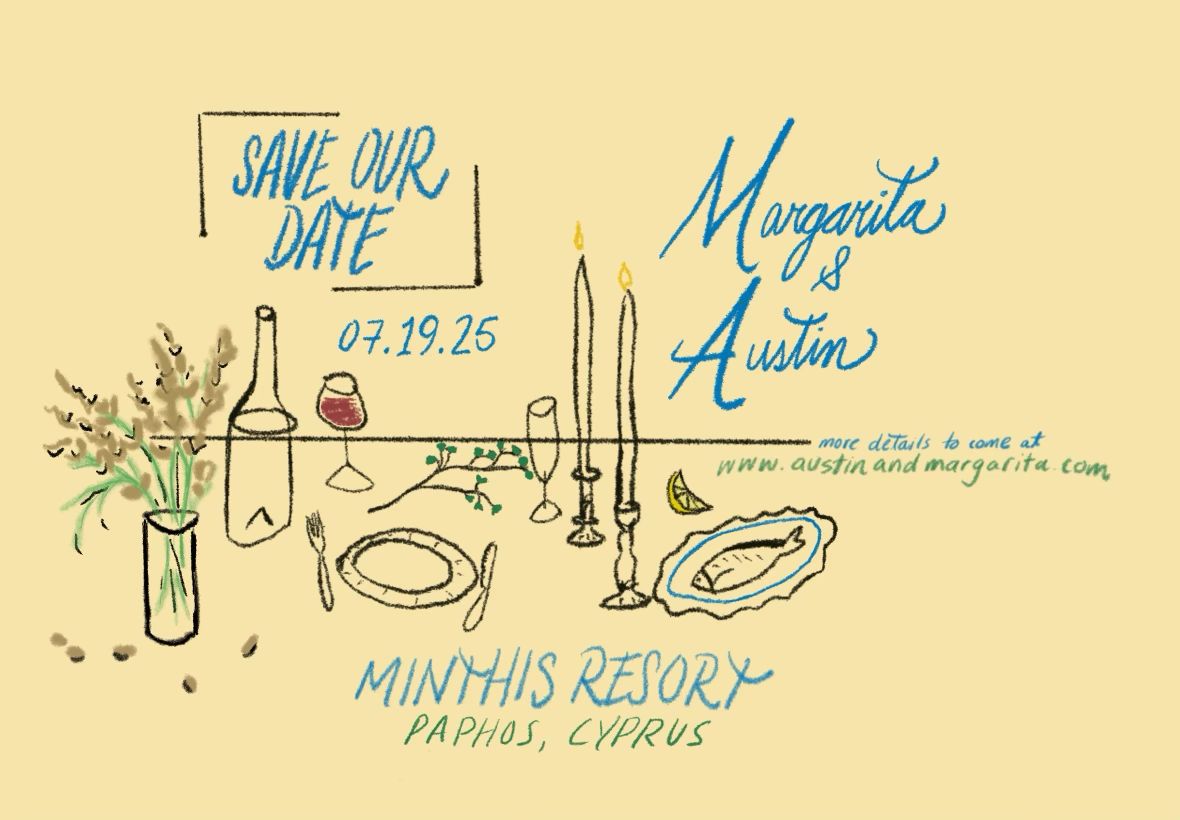 SAVE OUR
DATE
07.19.25
Margarita
&
Austin
more details to come at
www.austinandmargarita.com
MINTHIS RESORT
PAPHOS, CYPRUS